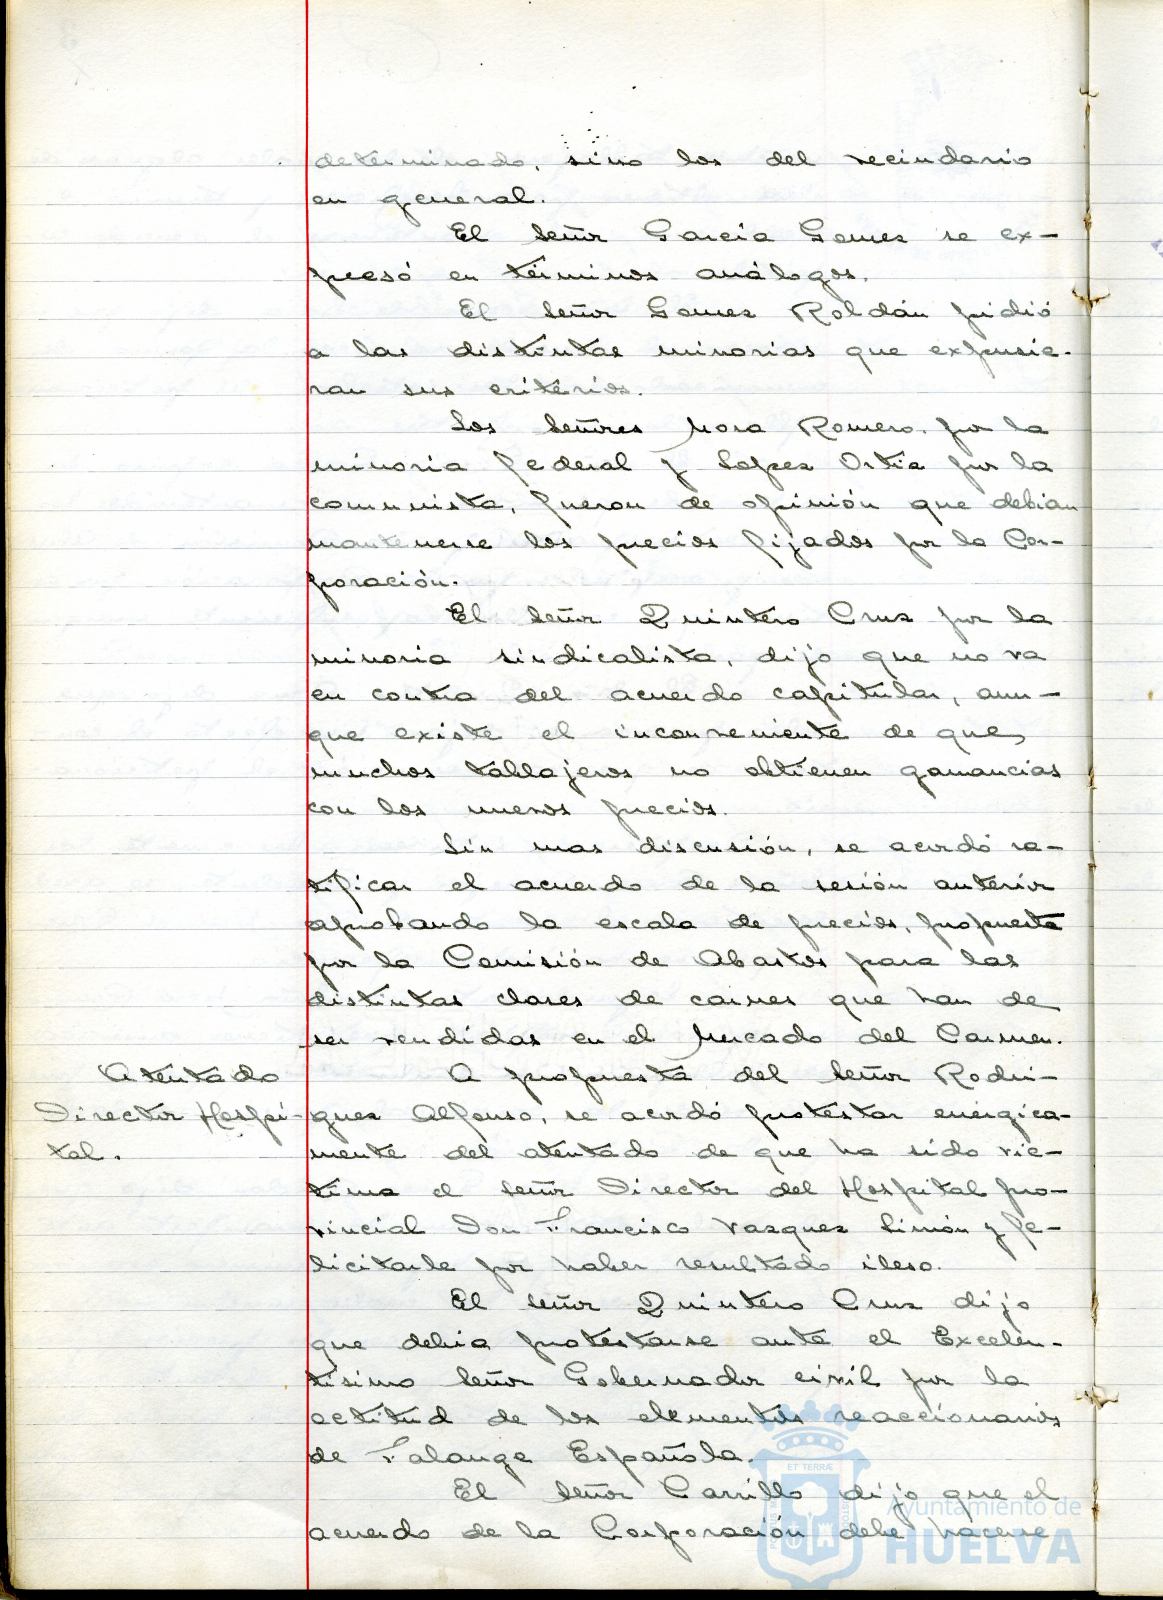 determinado, sino los del vecindario
en general.
El Señor García Gomez se ex-
presó en términos análogos.
El Señor Gomez Roldán pidió
a las distintas minorias que expusie-
ran sus critérios.
Los Señores Mora Romero, por la
minoria federal y Lopez Ortiz por la
comunista, fueron de opinión que debian
mantenerse los precios fijados por la Cor-
poración.
El Señor Quintero Cruz por la
minoria sindicalista, dijo que no va
en contra del acuerdo capitular, aun-
que existe el inconveniente de que,
muchos tablajeros no obtienen ganancias
con los nuevos precios.
Sin mas discusión, se acordó ra-
tificar el acuerdo de la sesión anterior
aprobando la escala de precios, propuesta
por la Comisión de Abastos para las
distintas clases de carnes que han de
ser vendidas en el Mercado del Carmen.
Atentado
Director Hospi-
tal.
A propuesta del Señor Rodri-
guez Alfonso, se acordó protestar enérgica-
mente del atentado de que ha sido vic-
tima el Señor Director del Hospital pro-
vincial Don Francisco Vazquez Limón y fe-
licitarle por haber resultado ileso.
El Señor Quintero Cruz dijo
que debia protestarse ante el Excelen-
tisimo Señor Gobernador civil por la
actitud de los elementos reaccionarios
de Falange Española.
El Señor Carrillo dijo que el
acuerdo de la Corporación debe hacerse
ET TERRÆ
Ayuntamiento de
HUELVA